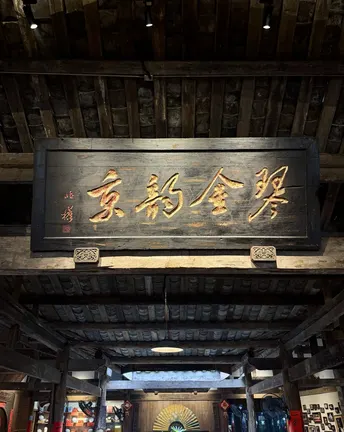 京韵金琴